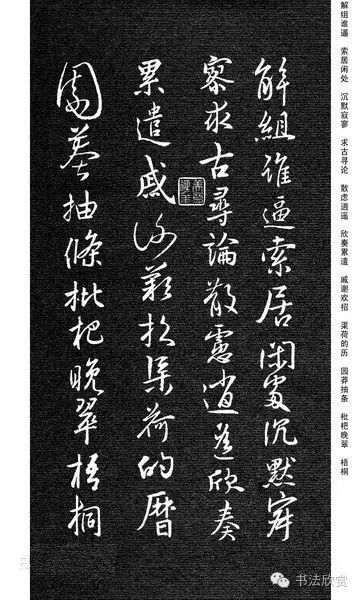 解组谁逼 索居闲处 沉默寂寥 求古寻论 散虑逍遥 欣奏累遣 戚谢欢招 渠荷的历 园莽抽条 枇杷晚翠 梧桐
解組誰逼索居閑處沉默寂
寥求古尋論散慮逍遙欣奏
累遣戚謝歡招渠荷的曆
園莽抽條枇杷晚翠梧桐
书法欣赏